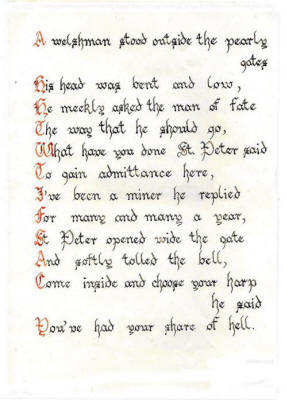 A welshman stood outside the pearly
gates
His head was bent and low,
He meekly asked the man of fate
The way that he should go,
What have you done St. Peter said
To gain admittance here,
I've been a miner he replied
For many and many a year,
St Peter opened wide the gate
And softly tolled the bell,
Come inside and choose your harp
he said
You've had your share of hell.